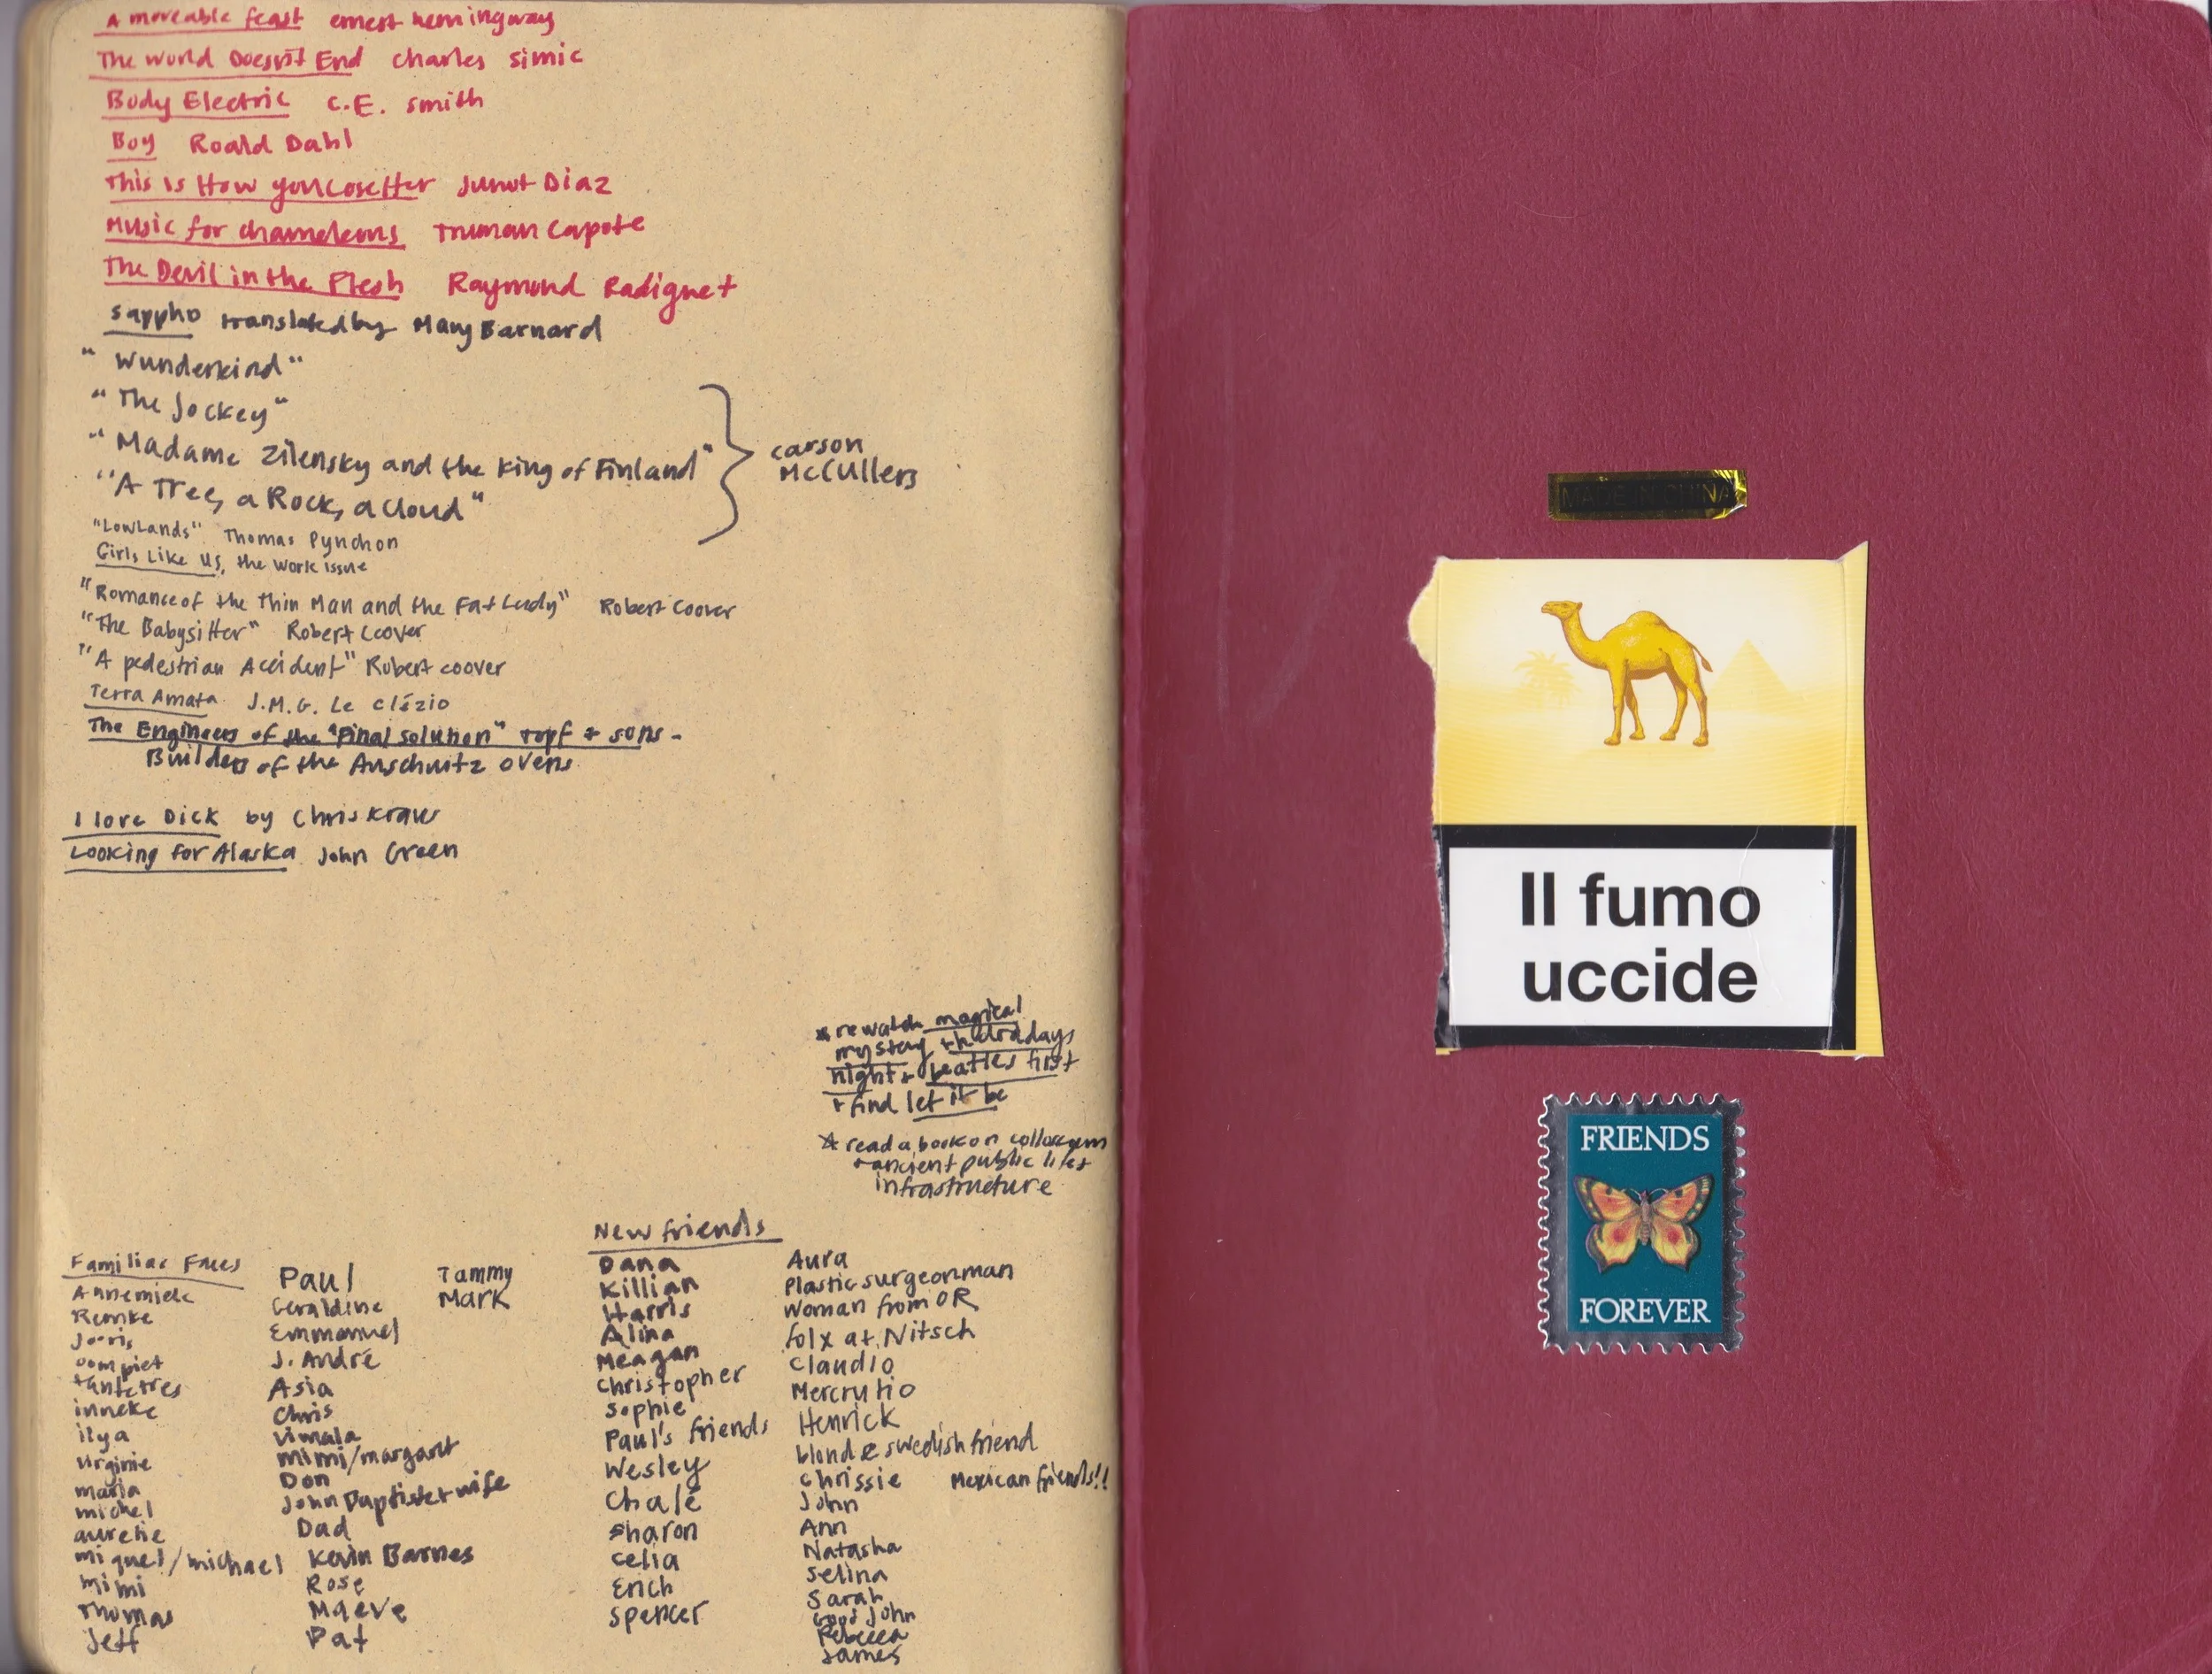 A moveable feast ernest hemingway
The World Doesn't End charles simic
Body Electric C.E. smith
Boy Roald Dahl
This Is How you Lose Her Junot Diaz
Music for chameleons Truman Capote
The Devil in the Flesh Raymond Radiguet
sappho translated by Mary Barnard
"Wunderkind"
"The Jockey"
"Madame Zilensky and the King of Finland"
"A Tree, a Rock, a Cloud"
carson
McCullers
"LowLands" Thomas Pynchon
Girls Like Us, the work issue
"Romance of the Thin Man and the Fat Lady" Robert Coover
"The Babysitter" Robert Coover
"A pedestrian Accident" Robert coover
Terra Amata J.M.G. Le Clézio
The Engineers of the "Final solution" topf + sons -
Builders of the Auschwitz ovens
I love Dick by Chris Kraus
Looking for Alaska John Green
* rewatch magical
mystery + hard days
night + beatles first
+ find let it be
* read a book on
+ ancient public
infrastructure
Familiar Faces
Annemiek
Remke
Joris
oom piet
tante tres
inneke
ilya
virginie
maria
michel
aurelie
miquel/michael
mimi
Thomas
Jeff
Paul
Geraldine
Emmanuel
J. André
Asia
Chris
Vimala
mimi/margaret
Don
John Baptiste + wife
Dad
Kevin Barnes
Rose
Maeve
Pat
Tammy
Mark
New friends
Dana
Killian
Harris
Alina
Meagan
Christopher
Sophie
Paul's friends
Wesley
Chalé
Sharon
Celia
Erich
Spencer
Aura
Plastic surgeon man
Woman from OR
folx at Nitsch
Claudio
Mercrutio
Henrick
blonde swedish friend
Chrissie
John
Ann
Natasha
Selina
Sarah
Good John
Rebecca
James
Mexican friends!!
MADE IN CHINA
Il fumo
uccide
FRIENDS
FOREVER